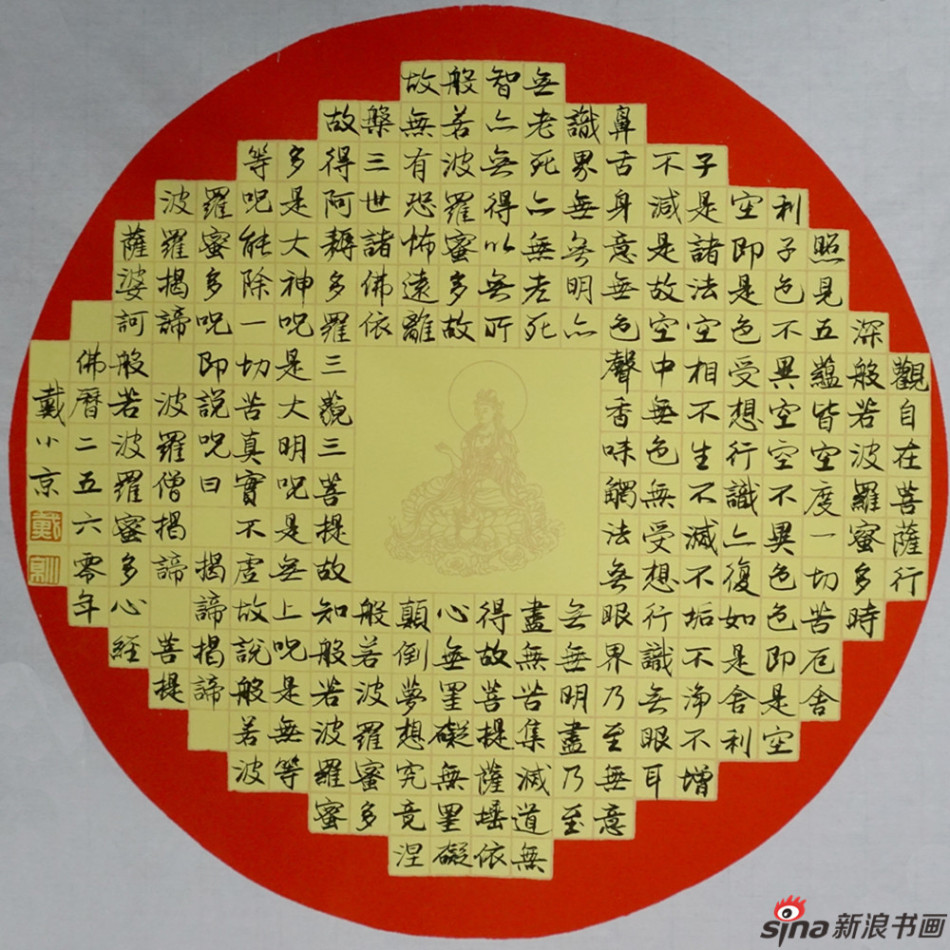 觀自在菩薩行
深般若波羅蜜多時
照見五蘊皆空度一切苦厄舍
利子色不異空空不異色色即是空
空即是色受想行識亦復如是舍利
子是諸法空相不生不滅不垢不淨不增
不減是故空中無色無受想行識无眼耳
鼻舌身意無色聲香味觸法无眼界乃至無意
識界無无明亦無無明盡乃至
無老死亦無老死盡無苦集滅道無
智亦無得以無所得故菩提薩埵依
般若波羅蜜多故心無罣礙無罣礙
故無有恐怖遠離顛倒夢想究竟涅
槃三世諸佛依般若波羅蜜多
故得阿耨多羅三藐三菩提故知般若波羅蜜
多是大神呪是大明呪是無上呪是無等
等呪能除一切苦真實不虛故說般若波
羅蜜多呪即說呪曰揭諦揭諦
波羅揭諦波羅僧揭諦菩提
薩婆訶般若波羅蜜多心經
佛曆二五六零年
戴小京
sina新浪书画